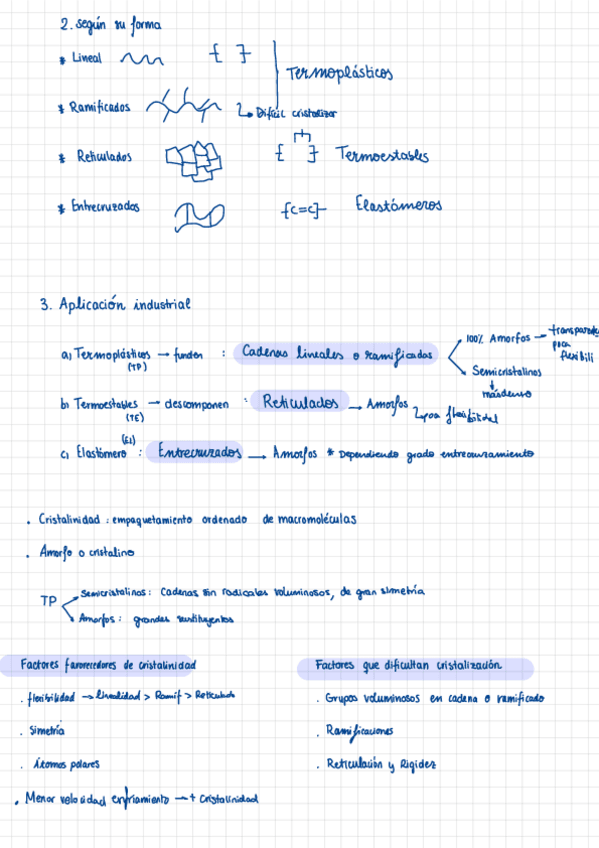 2. según su forma
* Lineal { } Termoplásticos
* Ramificados ↳ Difícil cristalizar
* Reticulados { } Termoestables
* Entrecruzados {c=c} Elastómeros
3. Aplicación industrial
a) Termoplásticos → funden : Cadenas lineales o ramificadas
(TP)
100% Amorfos → transparente
poca flexibili
Semicristalinos
↓
más denso
b) Termoestables → descomponen : Reticulados → Amorfos ↳ poca flexibilidad
(TE)
(El)
c) Elastómero : Entrecruzados → Amorfos * Dependiendo grado entrecruzamiento
. Cristalinidad : empaquetamiento ordenado de macromoléculas
. Amorfo o cristalino
TP
Semicristalinos: Cadenas sin radicales voluminosos, de gran simetría
Amorfos: grandes sustituyentes
Factores favorecedores de cristalinidad
. flexibilidad → linealidad > Ramif > Reticulado
. Simetría
. Átomos polares
. Menor velocidad enfriamiento → + Cristalinidad
Factores que dificultan cristalización
. Grupos voluminosos en cadena o ramificado
. Ramificaciones
. Reticulación y Rigidez